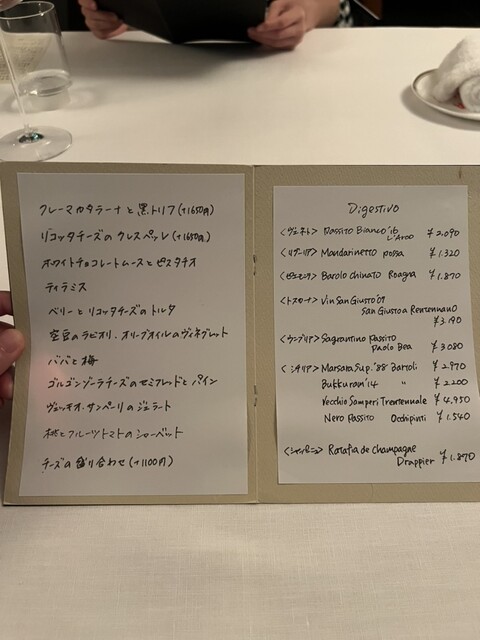 クレーマカタラーナと黒トリフ(+1650円)
リコッタチーズのクレスペッレ(+1650円)
ホワイトチョコレートムースとピスタチオ
ティラミス
ベリーとリコッタチーズのトルタ
空豆のラビオリ、オリーブオイルのヴィネグレット
ババと梅
ゴルゴンゾーラチーズのセミフレッドとパイン
ヴェッキオ・サンペーリのジェラート
桃とフルーツトマトのシャーベット
チーズの盛り合わせ(+1100円)
Digestivo
<ヴェネト> Passito Bianco '16 ¥2.090
L'Arco
<リグーリア> Mandarinetto possa ¥1.320
<ピエモンテ> Barolo Chinato Roagna ¥1.870
<トスカーナ> Vin San Giusto '09
San Giusto a Rentennano
¥3.190
<ウンブリア> Sagrantino Passito
Paolo Bea ¥3.080
<シチリア> Marsara Sup. '88 Bartoli ¥2.970
Bukkuram '14 〃 ¥2200
Vecchio Samperi Trentennale ¥4.950
Nero Passito Occhipinti ¥1.540
<シャンパーニュ> Ratafia de Champagne
Drappier ¥1.870